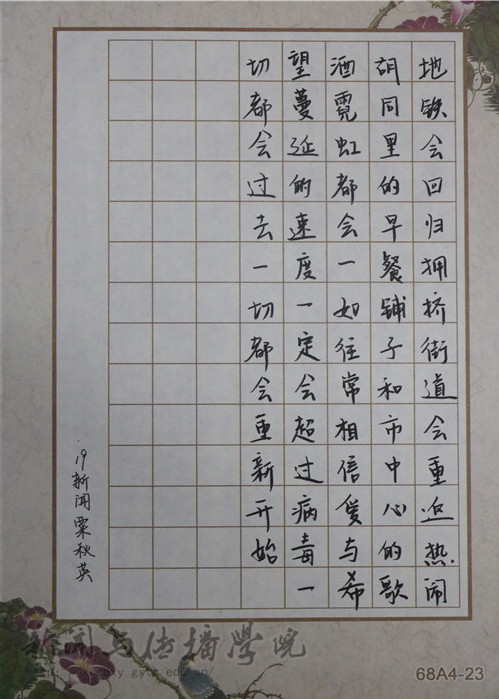 地铁会回归拥挤街道会重返热闹
胡同里的早餐铺子和市中心的歌
酒霓虹都会一如往常相信爱与希
望蔓延的速度一定会超过病毒一
切都会过去一切都会重新开始
19新闻粟秋英
新闻与传播学院
68A4-23